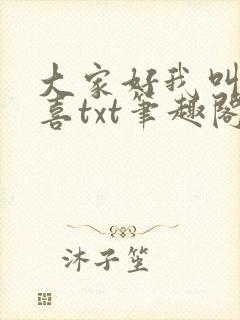 大家好我叫
喜txt筆趣閣
沐子笙